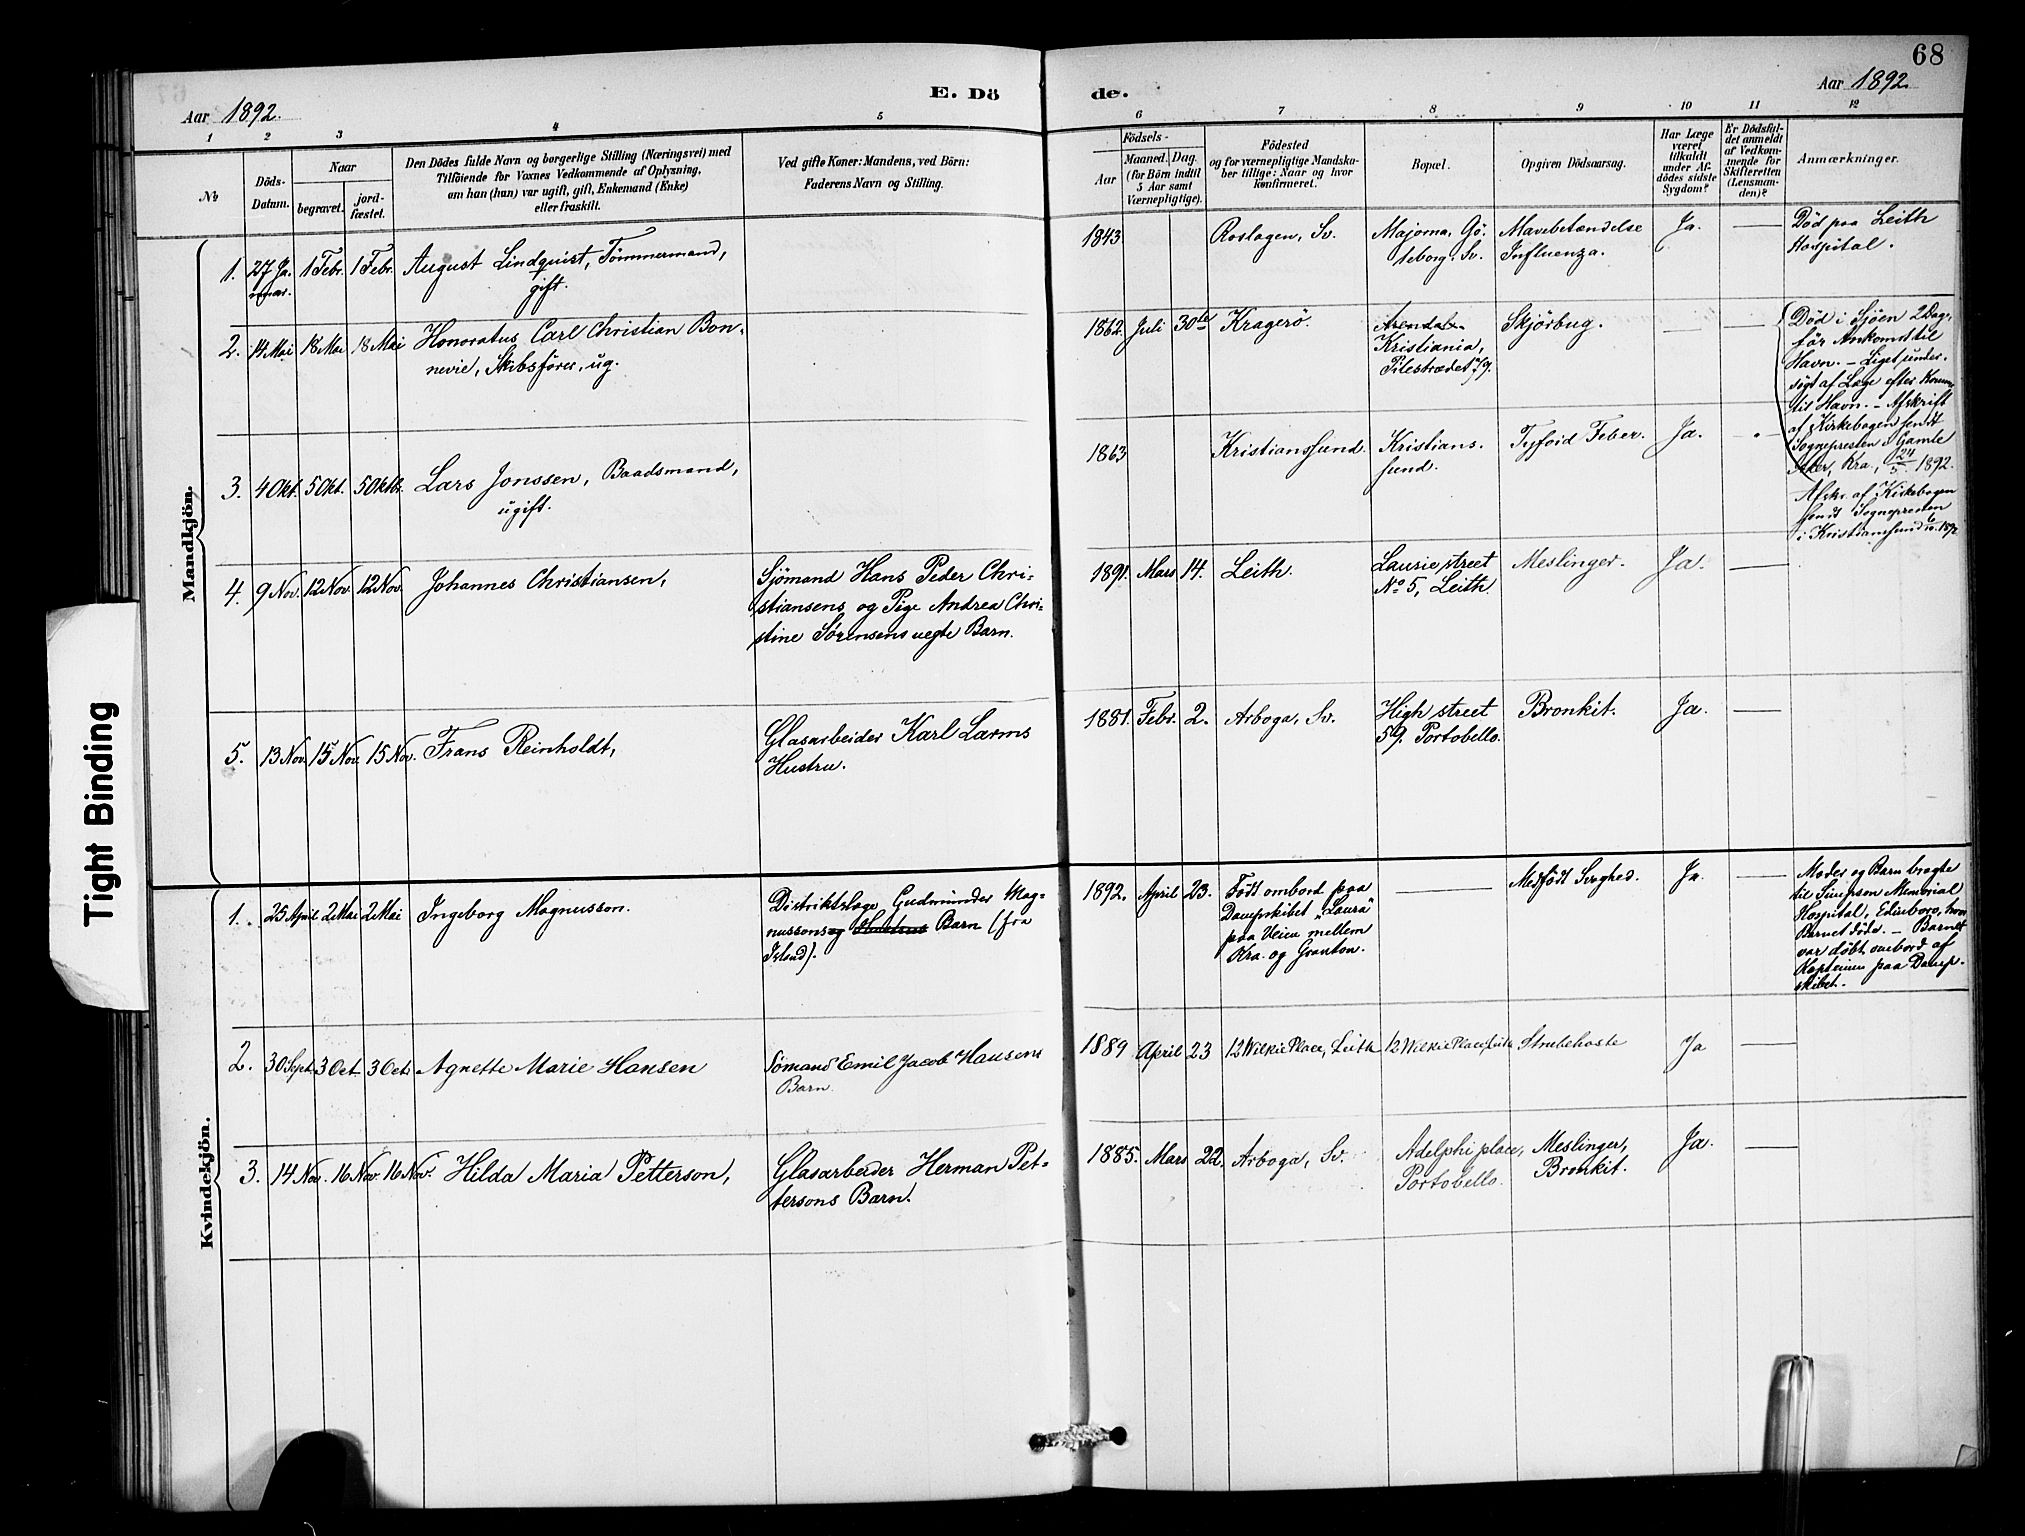 68
E. Dö de.
Aar 1892.
Aar 1892.
1 2 3 4 5 6 7 8 9 10 11 12
No
Döds-Datum.
Naar
begravet.
jord-fæstet.
Den Dödes fulde Navn og borgerlige Stilling (Næringsvei) med
Tilföiende for Voxnes Vedkommende af Oplysning,
om han (hun) var ugift, gift, Enkemand (Enke)
eller fraskilt.
Ved gifte Koner: Mandens, ved Börn:
Faderens Navn og Stilling.
Födsels-
Aar
Maaned. Dag.
(for Börn indtil
5 Aar samt
Værnepligtige).
Födested
og for værnepligtige Mandska-
ber tillige: Naar og hvor
konfirmeret.
Bopæl.
Opgiven Dödsaarsag.
Har Læge
været
tilkaldt
under Af-
dödes sidste
Sygdom?
Er Dödsfal-
det anmeldt
af Vedkom-
mende for
Skifteretten
(Lensman-
den)?
Anmærkninger.
Mandkjön.
1. 27 Ja-
nuar. 1 Febr. 1 Febr. August Lindquist, Tömmermand,
gift.
1843 Roslagen, Sv. Majorna, Gö-
teborg. Sv. Mavebetændelse
Influenza. Ja. — Död paa Leith
Hospital.
2. 14 Mai 18 Mai 18 Mai Honoratus Carl Christian Bon-
nevie, Skibsförer, ug.
1862. Juli 30te Kragerö. Arendal
Kristiania,
Pilestrædet 79. Skjörbug. — —
Död i Sjöen 2 Dag.
för Ankomst til
Havn. – Liget under-
sögt af Læge efter Komm.
til Havn. – Afskrift
af Kirkebogen sendt
Sognepresten i Gamle
Aker, Kra., 24/5 1892.
3. 4 Okt. 5 Okt. 5 Oktbr. Lars Jonssen, Baadsmand,
ugift.
1863 Kristianssund. Kristians-
sund. Tyfoid Feber. Ja.
Afskr. af Kirkebogen
sendt Sognepresten
i Kristianssund 6/10. 1892
4. 9 Nov. 12 Nov. 12 Nov. Johannes Christiansen,
Sjömand Hans Peder Chri-
stiansens og Pige Andrea Chri-
stine Sörensens uegte Barn.
1891. Mars 14. Leith. Laurie street
No 5, Leith. Meslinger. Ja. —
5. 13 Nov. 15 Nov. 15 Nov. Frans Reinholdt,
Glasarbeider Karl Larms
Hustru.
1881. Febr. 2. Arboga, Sv. High street
59. Portobello. Bronkit. Ja. —
Kvindekjön.
1. 25 April 2 Mai 2 Mai Ingeborg Magnusson.
Distriktslæge Gudmunder Mag-
nussons og Hustrus Barn (fra
Island).
1892. April 23. Födt ombord paa
Dampskibet "Laura"
paa Veien mellem
Kra. og Granton. — Medfödt Svaghed. Ja. —
Moder og Barn bragte
til Simpson Memorial
Hospital, Edinboro, hvor
Barnet döde. – Barnet
var döbt ombord af
Kapteinen paa Damp-
skibet.
2. 30 Sept. 3 Oct. 3 Oct. Agnette Marie Hansen
Sömand Emil Jacob Hansens
Barn.
1889 April 23 12 Wilkie Place, Leith 12 Wilkie Place, Leith Strubehoste Ja —
3. 14 Nov. 16 Nov. 16 Nov. Hilda Maria Petterson,
Glasarbeider Herman Pet-
tersons Barn.
1885. Mars 22. Arboga, Sv. Adelphi place,
Portobello. Meslinger,
Bronkit. Ja. —
Tight Binding